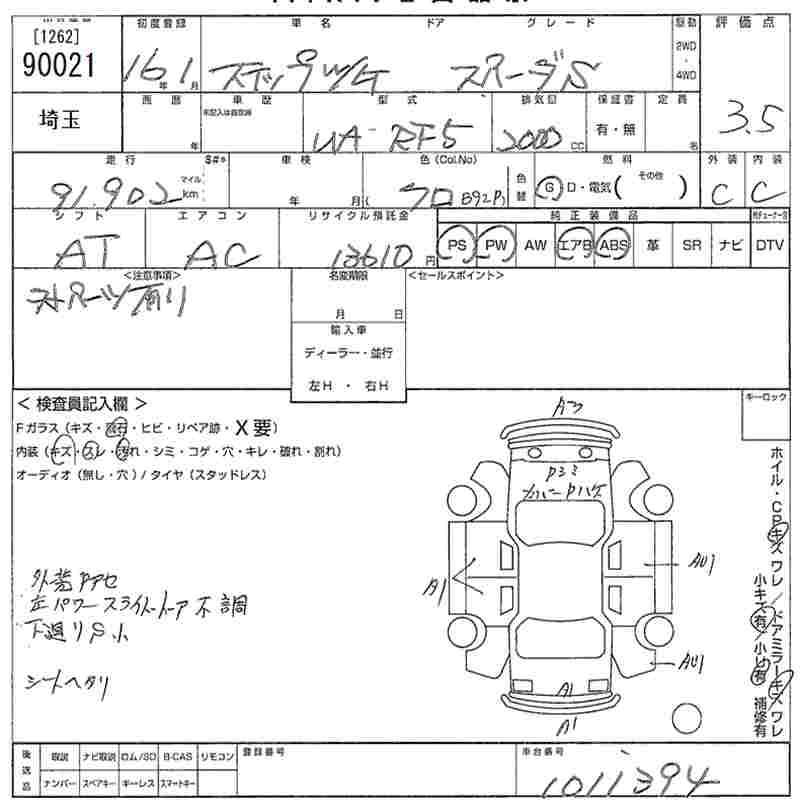 [1262]
90021
初度登録 車名 ドア グレード 駆動 評価点
16年1月 ステップワゴン スパーダS 2WD・4WD 3.5
埼玉
西暦 車歴 型式 排気量 保証書 定員
年 未記入は自家用 UA-RF5 2000CC 有・無 名
走行 S#* 車検 色(Col.No) 色替 燃料 外装 内装
91,902 マイル km 年 月( クロ B92P) G D・電気( その他 ) C C
シフト エアコン リサイクル預託金 純正装備品
AT AC 13610円 PS PW AW エアB ABS 革 SR ナビ DTV
<注意事項> 名変期限 <セールスポイント>
月 日
輸入車
ディーラー・並行
左H・右H
<検査員記入欄> キーロック
Fガラス(キズ・飛石・ヒビ・リペア跡・X要)
内装(キズ・スレ・汚れ・シミ・コゲ・穴・キレ・破れ・割れ)
オーディオ(無し・穴)/タイヤ(スタッドレス)
Pトミ
カバーPハゲ
A1
AU1
AU1
A1
A1
外装Pアセ
左パワースライドドア不調
下廻りS小
シートヘタリ
ホイル・CPキズワレ/ドアミラーキズワレ
小キズ有/小凹有 補修有
後送品 取説 ナビ取説 ロム/SD B-CAS リモコン 登録番号 車台番号
ナンバー スペアキー キーレス スマートキー 1011394